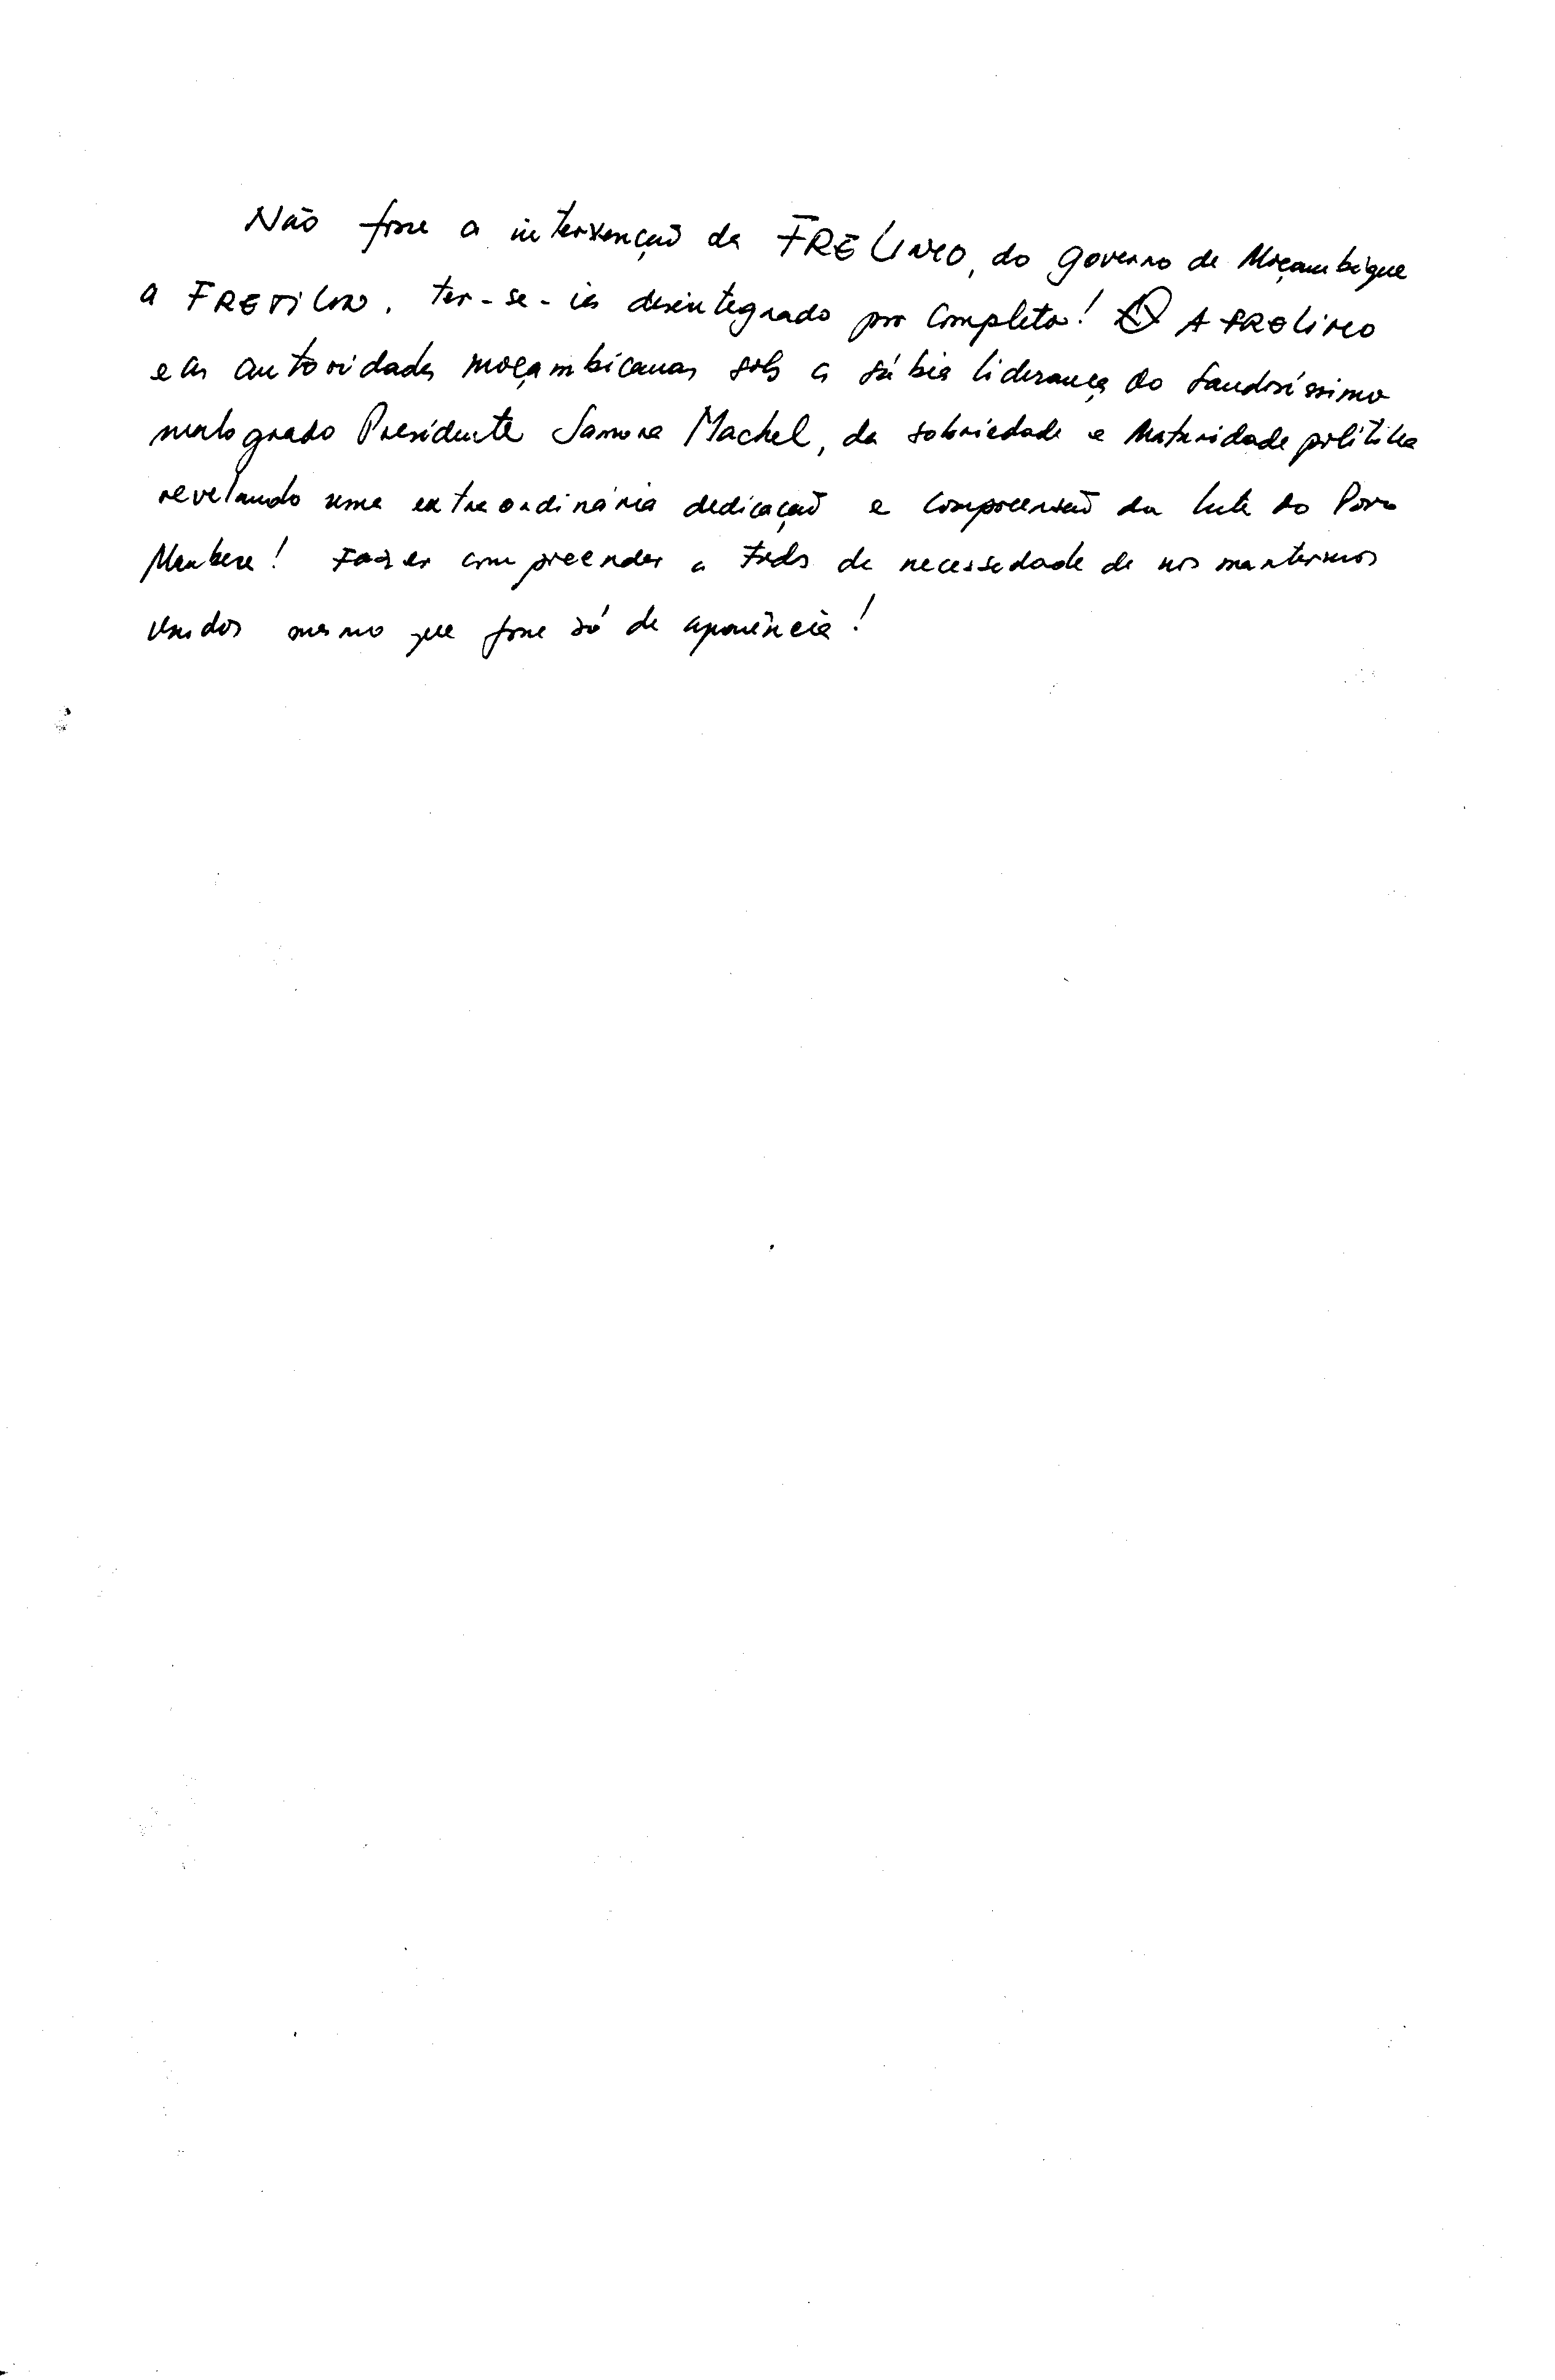 Não fosse a intervenção da FRELIMO, do governo de Moçambique
a FRETILIN. ter-se-ia desintegrado por completo! A FRELIMO
e as autoridades moçambicanas sob a sábia liderança do saudosíssimo
malogrado Presidente Samora Machel, da sobriedade e maturidade política
revelando uma extraordinária dedicação e compreensão da luta do Povo
Maubere! Fazer compreender a todos da necessidade de nos mantermos
unidos mesmo que fosse só de aparência!